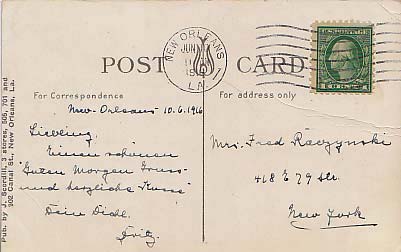 NEW ORLEANS
JUN
LA.
POST CARD
For Correspondence
For address only
New-Orleans 10.6.1916
Liebling.
Einen schönen
"Guten Morgen Gruss
und herzliche Küsse
Dein
Fritz.
Mrs. Fred Raczynski
418 E 79 Str.
New York
Pub. by J. Scordill, 3 stores, 505, 701 and
902 Canal St., New Orleans, La.